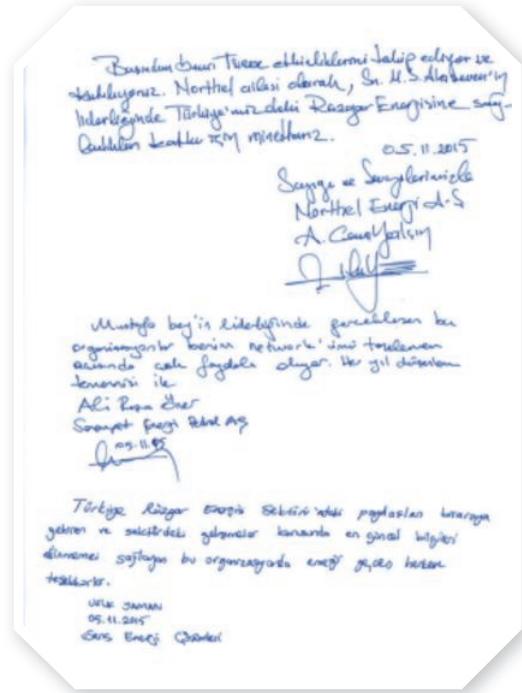 Başından beri Türex etkinliklerini takip ediyor ve
katılıyoruz. Northel ailesi olarak, Sn. M. S.
liderliğinde Türkiye'mizdeki Rüzgar Enerjisine sağ-
ladıkları katkı için minettarız.
05.11.2015
Saygı ve Sevgilerimizle
Northel Enerji A.Ş
A. Can Yalçın
Mustafa bey'in liderliğinde gerçekleşen bu
organizasyonlar benim network'ümü tazelemem
açısında çok faydalı oluyor. Her yıl düzenlenmesi
temennisi ile
Ali Rıza Öner
Enerji Petrol AŞ
05.11.15
Türkiye Rüzgar Enerjisi Sektörü'ndeki paydaşları biraraya
getiren ve sektördeki gelişmeler konusunda en güncel bilgileri
edinmemizi sağlayan bu organizasyonda emeği geçen herkese
teşekkürler.
UFUK YAMAN
05.11.2015
Enerji Çözümleri